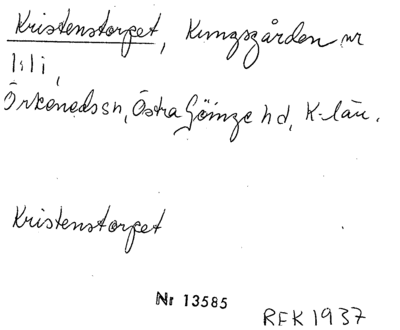 Kristenstorpet, Kungsgården nr
1:1 i,
Örkeneds sn, Östra Göinge hd, K-län.
Kristenstorpet
Nr 13585
RFK 1937